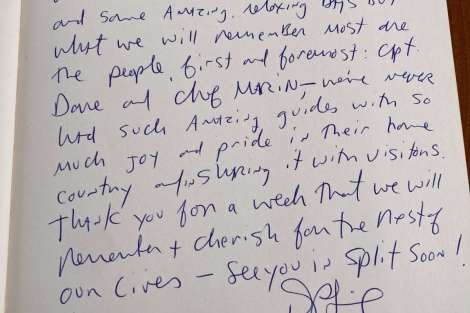 and some Amazing, relaxing DAYS BUT
what we will remember most are
the people, first and foremost: Cpt.
Dane and Chef MARIN, — we've never
had such Amazing guides with so
much JOY and pride in their home
country and in Sharing it with visitors.
Thank you for a week that we will
remember + cherish for the rest of
our lives — See you in Split Soon!